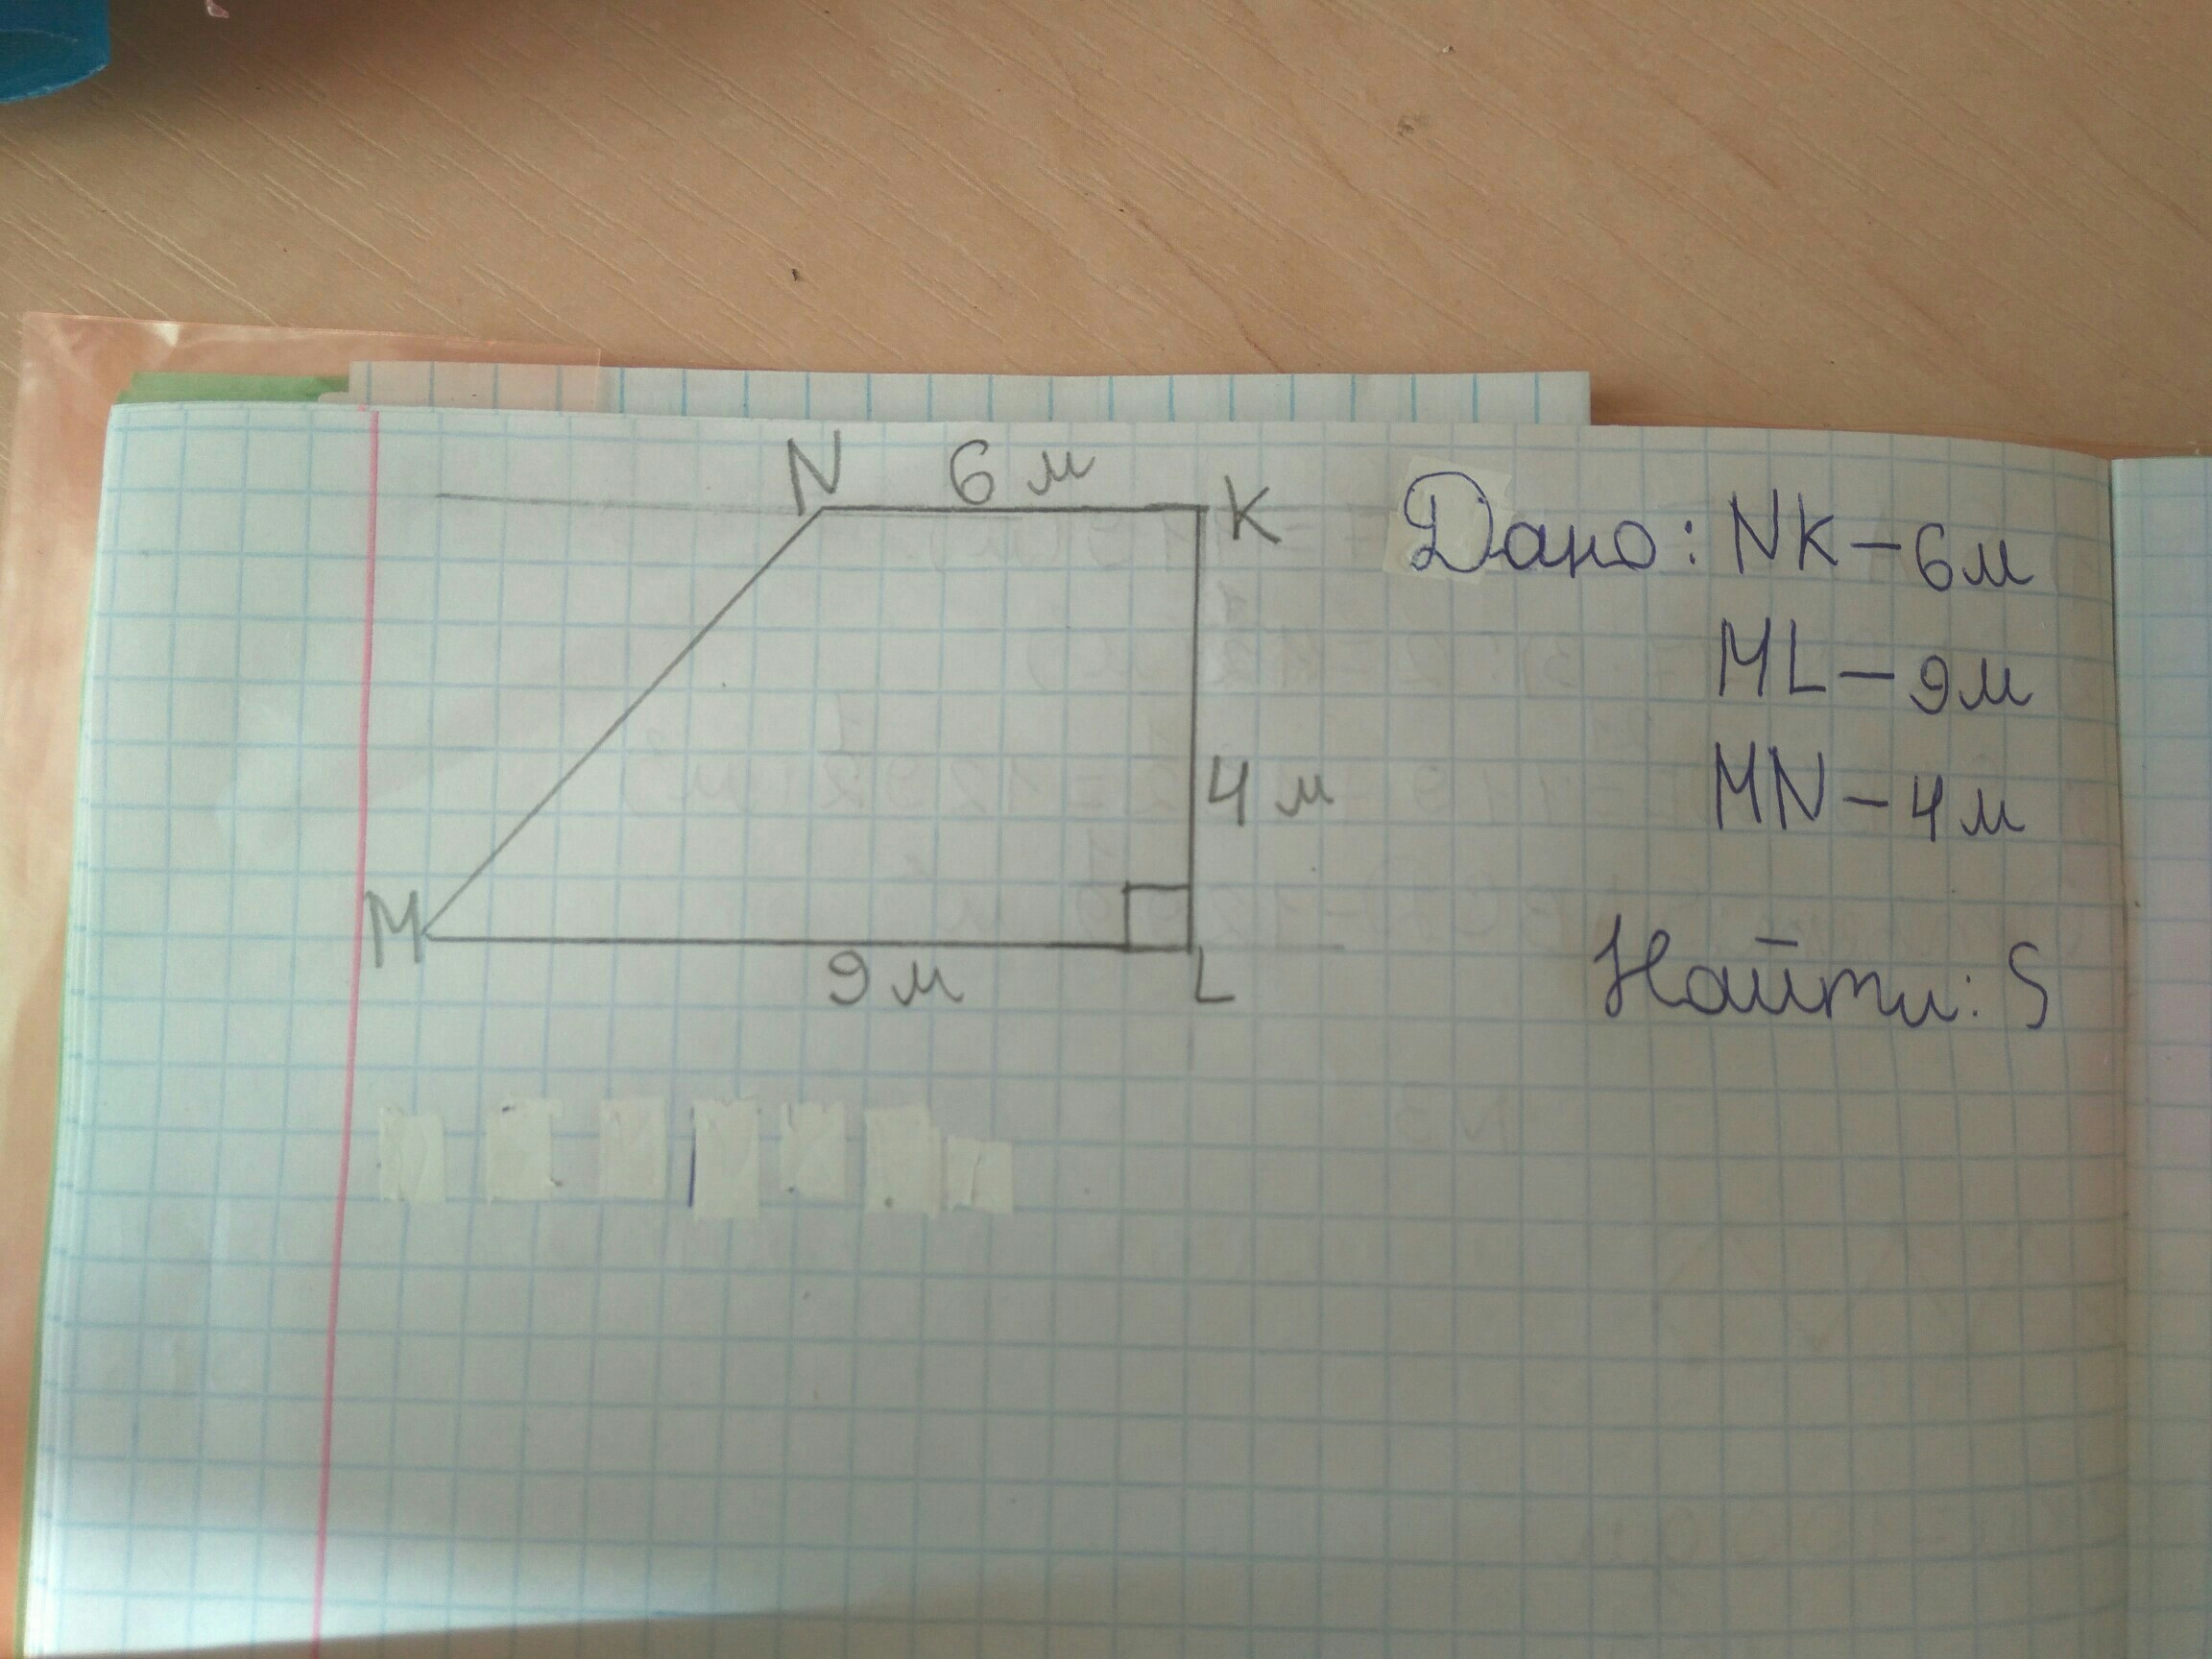 N 6 м K
4 м
M 9 м L
Дано: NK – 6м
ML – 9м
MN – 4м
Найти: S